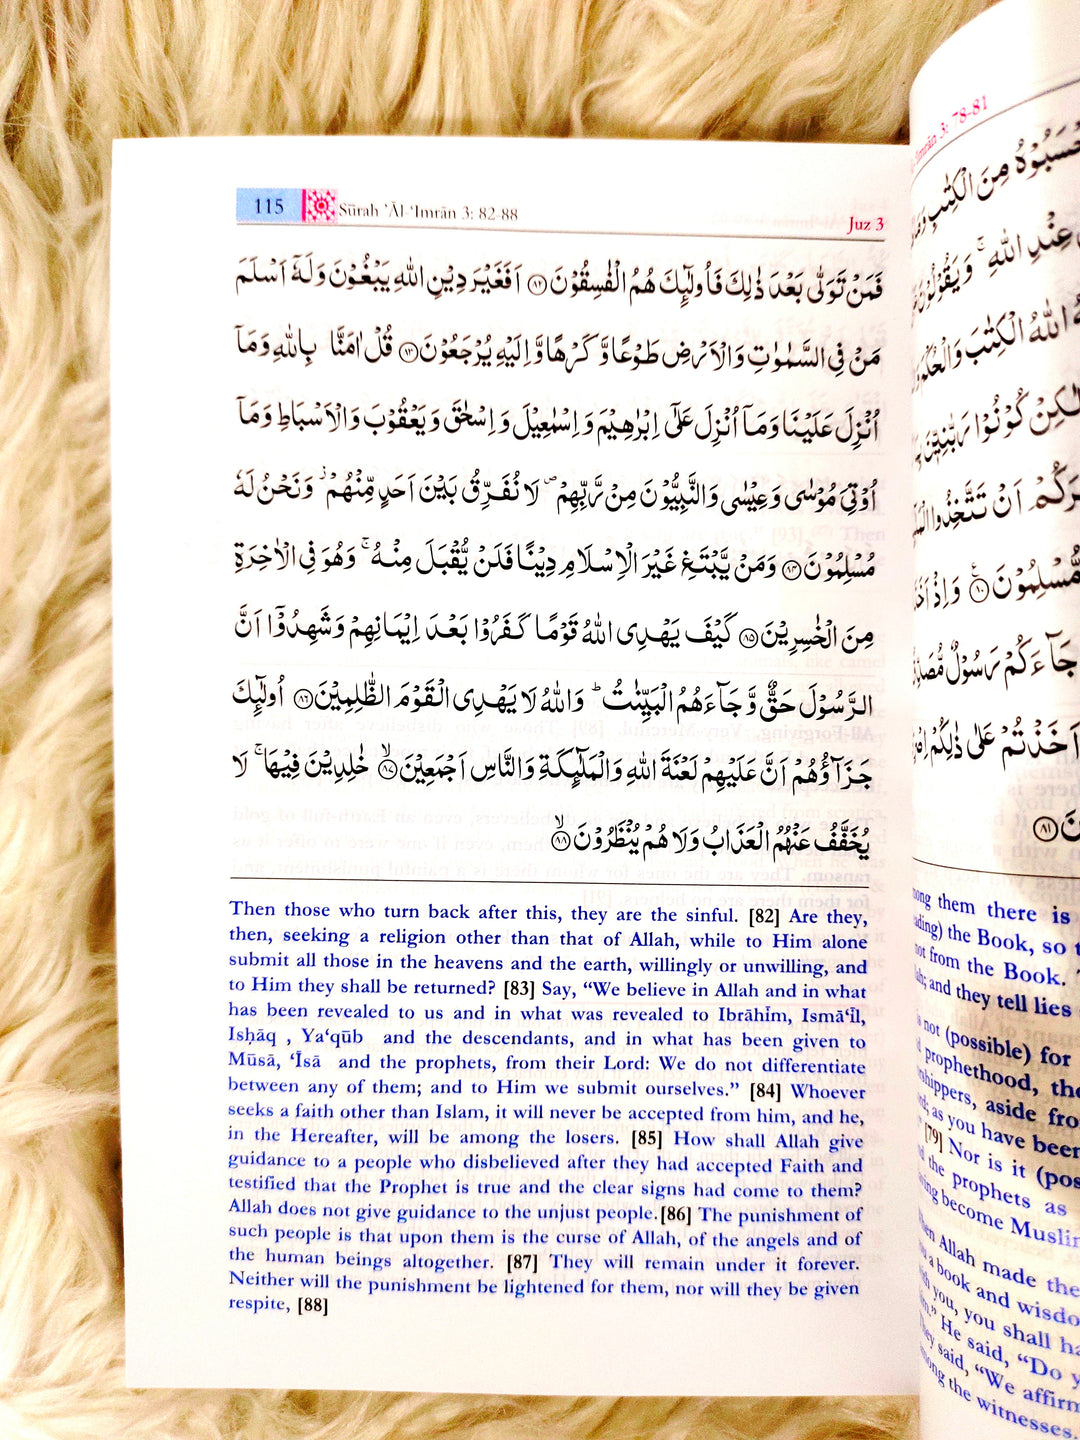 115 Sūrah 'Āl-'Imrān 3: 82-88
Juz 3
فَمَنْ تَوَلّٰى بَعْدَ ذٰلِكَ فَاُولٰٓئِكَ هُمُ الْفٰسِقُوْنَ ۝٨٢ اَفَغَيْرَ دِيْنِ اللّٰهِ يَبْغُوْنَ وَلَهٗٓ اَسْلَمَ
مَنْ فِى السَّمٰوٰتِ وَالْاَرْضِ طَوْعًا وَّ كَرْهًا وَّ اِلَيْهِ يُرْجَعُوْنَ ۝٨٣ قُلْ اٰمَنَّا بِاللّٰهِ وَمَآ
اُنْزِلَ عَلَيْنَا وَمَآ اُنْزِلَ عَلٰٓى اِبْرٰهِيْمَ وَ اِسْمٰعِيْلَ وَ اِسْحٰقَ وَ يَعْقُوْبَ وَالْاَسْبَاطِ وَمَآ
اُوْتِىَ مُوْسٰى وَ عِيْسٰى وَالنَّبِيُّوْنَ مِنْ رَّبِّهِمْ ۖ لَا نُفَرِّقُ بَيْنَ اَحَدٍ مِّنْهُمْ ۡ وَنَحْنُ لَهٗ
مُسْلِمُوْنَ ۝٨٤ وَمَنْ يَّبْتَغِ غَيْرَ الْاِسْلَامِ دِيْنًا فَلَنْ يُّقْبَلَ مِنْهُ ۚ وَهُوَ فِى الْاٰخِرَةِ
مِنَ الْخٰسِرِيْنَ ۝٨٥ كَيْفَ يَهْدِى اللّٰهُ قَوْمًا كَفَرُوْا بَعْدَ اِيْمَانِهِمْ وَ شَهِدُوْٓا اَنَّ
الرَّسُوْلَ حَقٌّ وَّ جَآءَهُمُ الْبَيِّنٰتُ ؕ وَاللّٰهُ لَا يَهْدِى الْقَوْمَ الظّٰلِمِيْنَ ۝٨٦ اُولٰٓئِكَ
جَزَآؤُهُمْ اَنَّ عَلَيْهِمْ لَعْنَةَ اللّٰهِ وَالْمَلٰٓئِكَةِ وَالنَّاسِ اَجْمَعِيْنَ ۝٨٧ۙ خٰلِدِيْنَ فِيْهَا ۚ لَا
يُخَفَّفُ عَنْهُمُ الْعَذَابُ وَلَا هُمْ يُنْظَرُوْنَ ۝٨٨ۙ
Then those who turn back after this, they are the sinful. [82] Are they,
then, seeking a religion other than that of Allah, while to Him alone
submit all those in the heavens and the earth, willingly or unwilling, and
to Him they shall be returned? [83] Say, “We believe in Allah and in what
has been revealed to us and in what was revealed to Ibrāhīm, Ismā‘īl,
Isḥāq , Ya‘qūb and the descendants, and in what has been given to
Mūsā, ‘Īsā and the prophets, from their Lord: We do not differentiate
between any of them; and to Him we submit ourselves.” [84] Whoever
seeks a faith other than Islam, it will never be accepted from him, and he,
in the Hereafter, will be among the losers. [85] How shall Allah give
guidance to a people who disbelieved after they had accepted Faith and
testified that the Prophet is true and the clear signs had come to them?
Allah does not give guidance to the unjust people.[86] The punishment of
such people is that upon them is the curse of Allah, of the angels and of
the human beings altogether. [87] They will remain under it forever.
Neither will the punishment be lightened for them, nor will they be given
respite, [88]
-‘Imrān 3: 78-81
مِنَ الْكِتٰبِ
عِنْدِ اللّٰهِ ۚ وَيَقُوْلُوْنَ
اللّٰهُ الْكِتٰبَ وَالْحُكْمَ
كُوْنُوْا رَبّٰنِيّٖنَ
اَنْ تَتَّخِذُوا
مُّسْلِمُوْنَ ۝٨٠ وَاِذْ
جَآءَكُمْ رَسُوْلٌ
اَخَذْتُمْ عَلٰى ذٰلِكُمْ
۝٨١
them there is
the Book, so
from the Book.
and they tell lies
not (possible) for
prophethood, the
aside fro
as you have been
[79] Nor is it (pos
the prophets as
become Muslim
Allah made the
a book and wisdo
you, you shall ha
He said, “Do y
said, “We affirm
the witnesses.